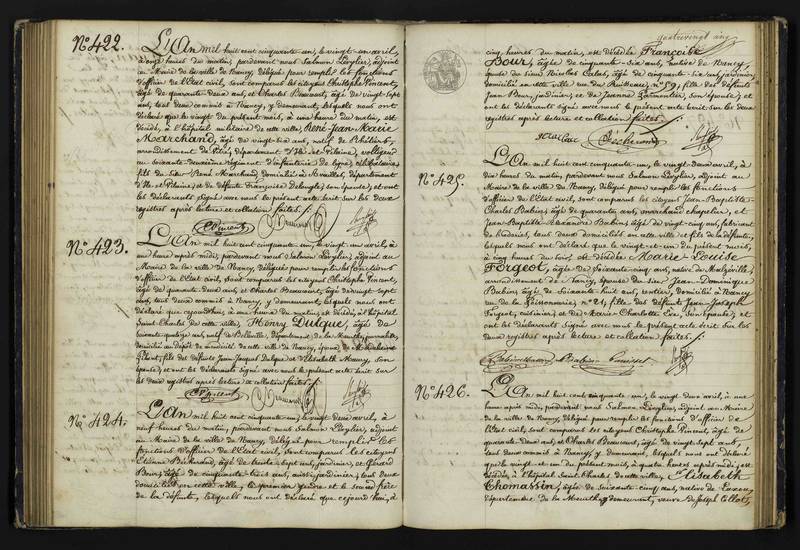 N.o 422.
L'An mil huit cent cinquante-un, le vingt-un avril,
à onze heures du matin, pardevant nous Salmon Lévylier, adjoint
au Maire de la ville de Nancy, délégué pour remplir les fonctions
d'officier de l'état civil, sont comparus les citoyens Christophe Pincent,
âgé de quarante-deux ans, et Charles Beaucourt, âgé de vingt-sept
ans, tous deux commis à Nancy, y demeurant, lesquels nous ont
déclaré que le vingt du présent mois, à une heure du matin, est
décédé, à l'hôpital militaire de cette ville, René-Jean-Marie
Marchand, âgé de vingt-six ans, natif de
arrondissement de département d'Ille-et-Vilaine, voltigeur
au soixante-deuxième régiment d'infanterie de ligne, célibataire,
fils de Sieur René Marchand, domicilié à département
d'Ille et Vilaine, et de défunte Françoise son épouse; et ont
les déclarants signé avec nous le présent acte écrit sur les deux
registres après lecture et collation faites.
N.o 423.
L'An mil huit cent cinquante-un, le vingt-un avril, à
une heure après midi, pardevant nous Salmon Lévylier, adjoint au
Maire de la ville de Nancy, délégué pour remplir les fonctions
d'officier de l'état civil, sont comparus les citoyens Christophe Pincent,
âgé de quarante-deux ans, et Charles Beaucourt, âgé de vingt-sept
ans, tous deux commis à Nancy, y demeurant, lesquels nous ont
déclaré que cejourd'hui, à une heure du matin, est décédé, à l'hôpital
Saint Charles de cette ville, Henry Dulque, âgé de
ans, natif de Belleville, département de la Meurthe, journalier,
domicilié au dépôt de mendicité de cette ville de Nancy, époux de
fils des défunts Jean-Jacques Dulque et d'Elisabeth Maury, son
épouse; et ont les déclarants signé avec nous le présent acte écrit sur
les deux registres après lecture et collation faites.
N.o 424.
L'An mil huit cent cinquante-un, le vingt-deux avril, à
neuf heures du matin, pardevant nous Salmon Lévylier, adjoint
au Maire de la ville de Nancy, délégué pour remplir les
fonctions d'officier de l'état civil, sont comparus les citoyens
Etienne âgé de trente-sept ans, jardinier, et Gérard
Bour, âgé de cinquante-trois ans, aussi jardinier, tous deux
domiciliés en cette ville, le premier gendre et le second frère
de la défunte, lesquels nous ont déclaré que cejourd'hui, à
quatrevingt un
cinq heures du matin, est décédée Françoise
Bour, âgée de cinquante-six ans, native de Nancy,
épouse du sieur Nicolas Calot, âgé de cinquante-six ans, jardinier,
domiciliée en cette ville rue du Ruisseau, n° 59, fille des défunts
Jean Bour, jardinier, et de Jeanne Parmentier, son épouse; et
ont les déclarants signé avec nous le présent acte écrit sur les deux
registres après lecture et collation faites.
N.o 425.
L'An mil huit cent cinquante-un, le vingt-deux avril, à
dix heures du matin, pardevant nous Salmon Lévylier, adjoint au
Maire de la ville de Nancy, délégué pour remplir les fonctions
d'officier de l'état civil, sont comparus les citoyens Jean-Baptiste-
Charles Babin, âgé de quarante ans, marchand chapelier, et
Jean-Baptiste-Alexandre Babin, âgé de vingt-cinq ans, fabricant
de broderies, tous deux domiciliés en cette ville et fils de la défunte,
lesquels nous ont déclaré que le vingt-et-un du présent mois,
à cinq heures du soir, est décédée Marie-Louise
Forgeot, âgée de soixante-cinq ans, native de Malzéville,
arrondissement de Nancy, épouse du sieur Jean-Dominique
Babin, âgé de soixante-huit ans, rentier, domiciliée à Nancy
rue de la Poissonnerie, n° 21, fille des défunts Jean-Joseph
Forgeot, cuisinier, et de Marie-Charlotte son épouse; et
ont les déclarants signé avec nous le présent acte écrit sur les
deux registres après lecture et collation faites.
N.o 426.
L'An mil huit cent cinquante-un, le vingt-deux avril, à une
heure après midi, pardevant nous Salmon Lévylier, adjoint au Maire
de la ville de Nancy, délégué pour remplir les fonctions d'officier de
l'état civil, sont comparus les citoyens Christophe Pincent, âgé de
quarante-deux ans, et Charles Beaucourt, âgé de vingt-sept ans,
tous deux commis à Nancy, y demeurant, lesquels nous ont déclaré
que le vingt-et-un du présent mois, à quatre heures après midi, est
décédée, à l'hôpital Saint Charles de cette ville, Elisabeth
Thomassin, âgée de soixante-cinq ans, native de
département de la Meurthe, y demeurant, veuve de Joseph Collot,